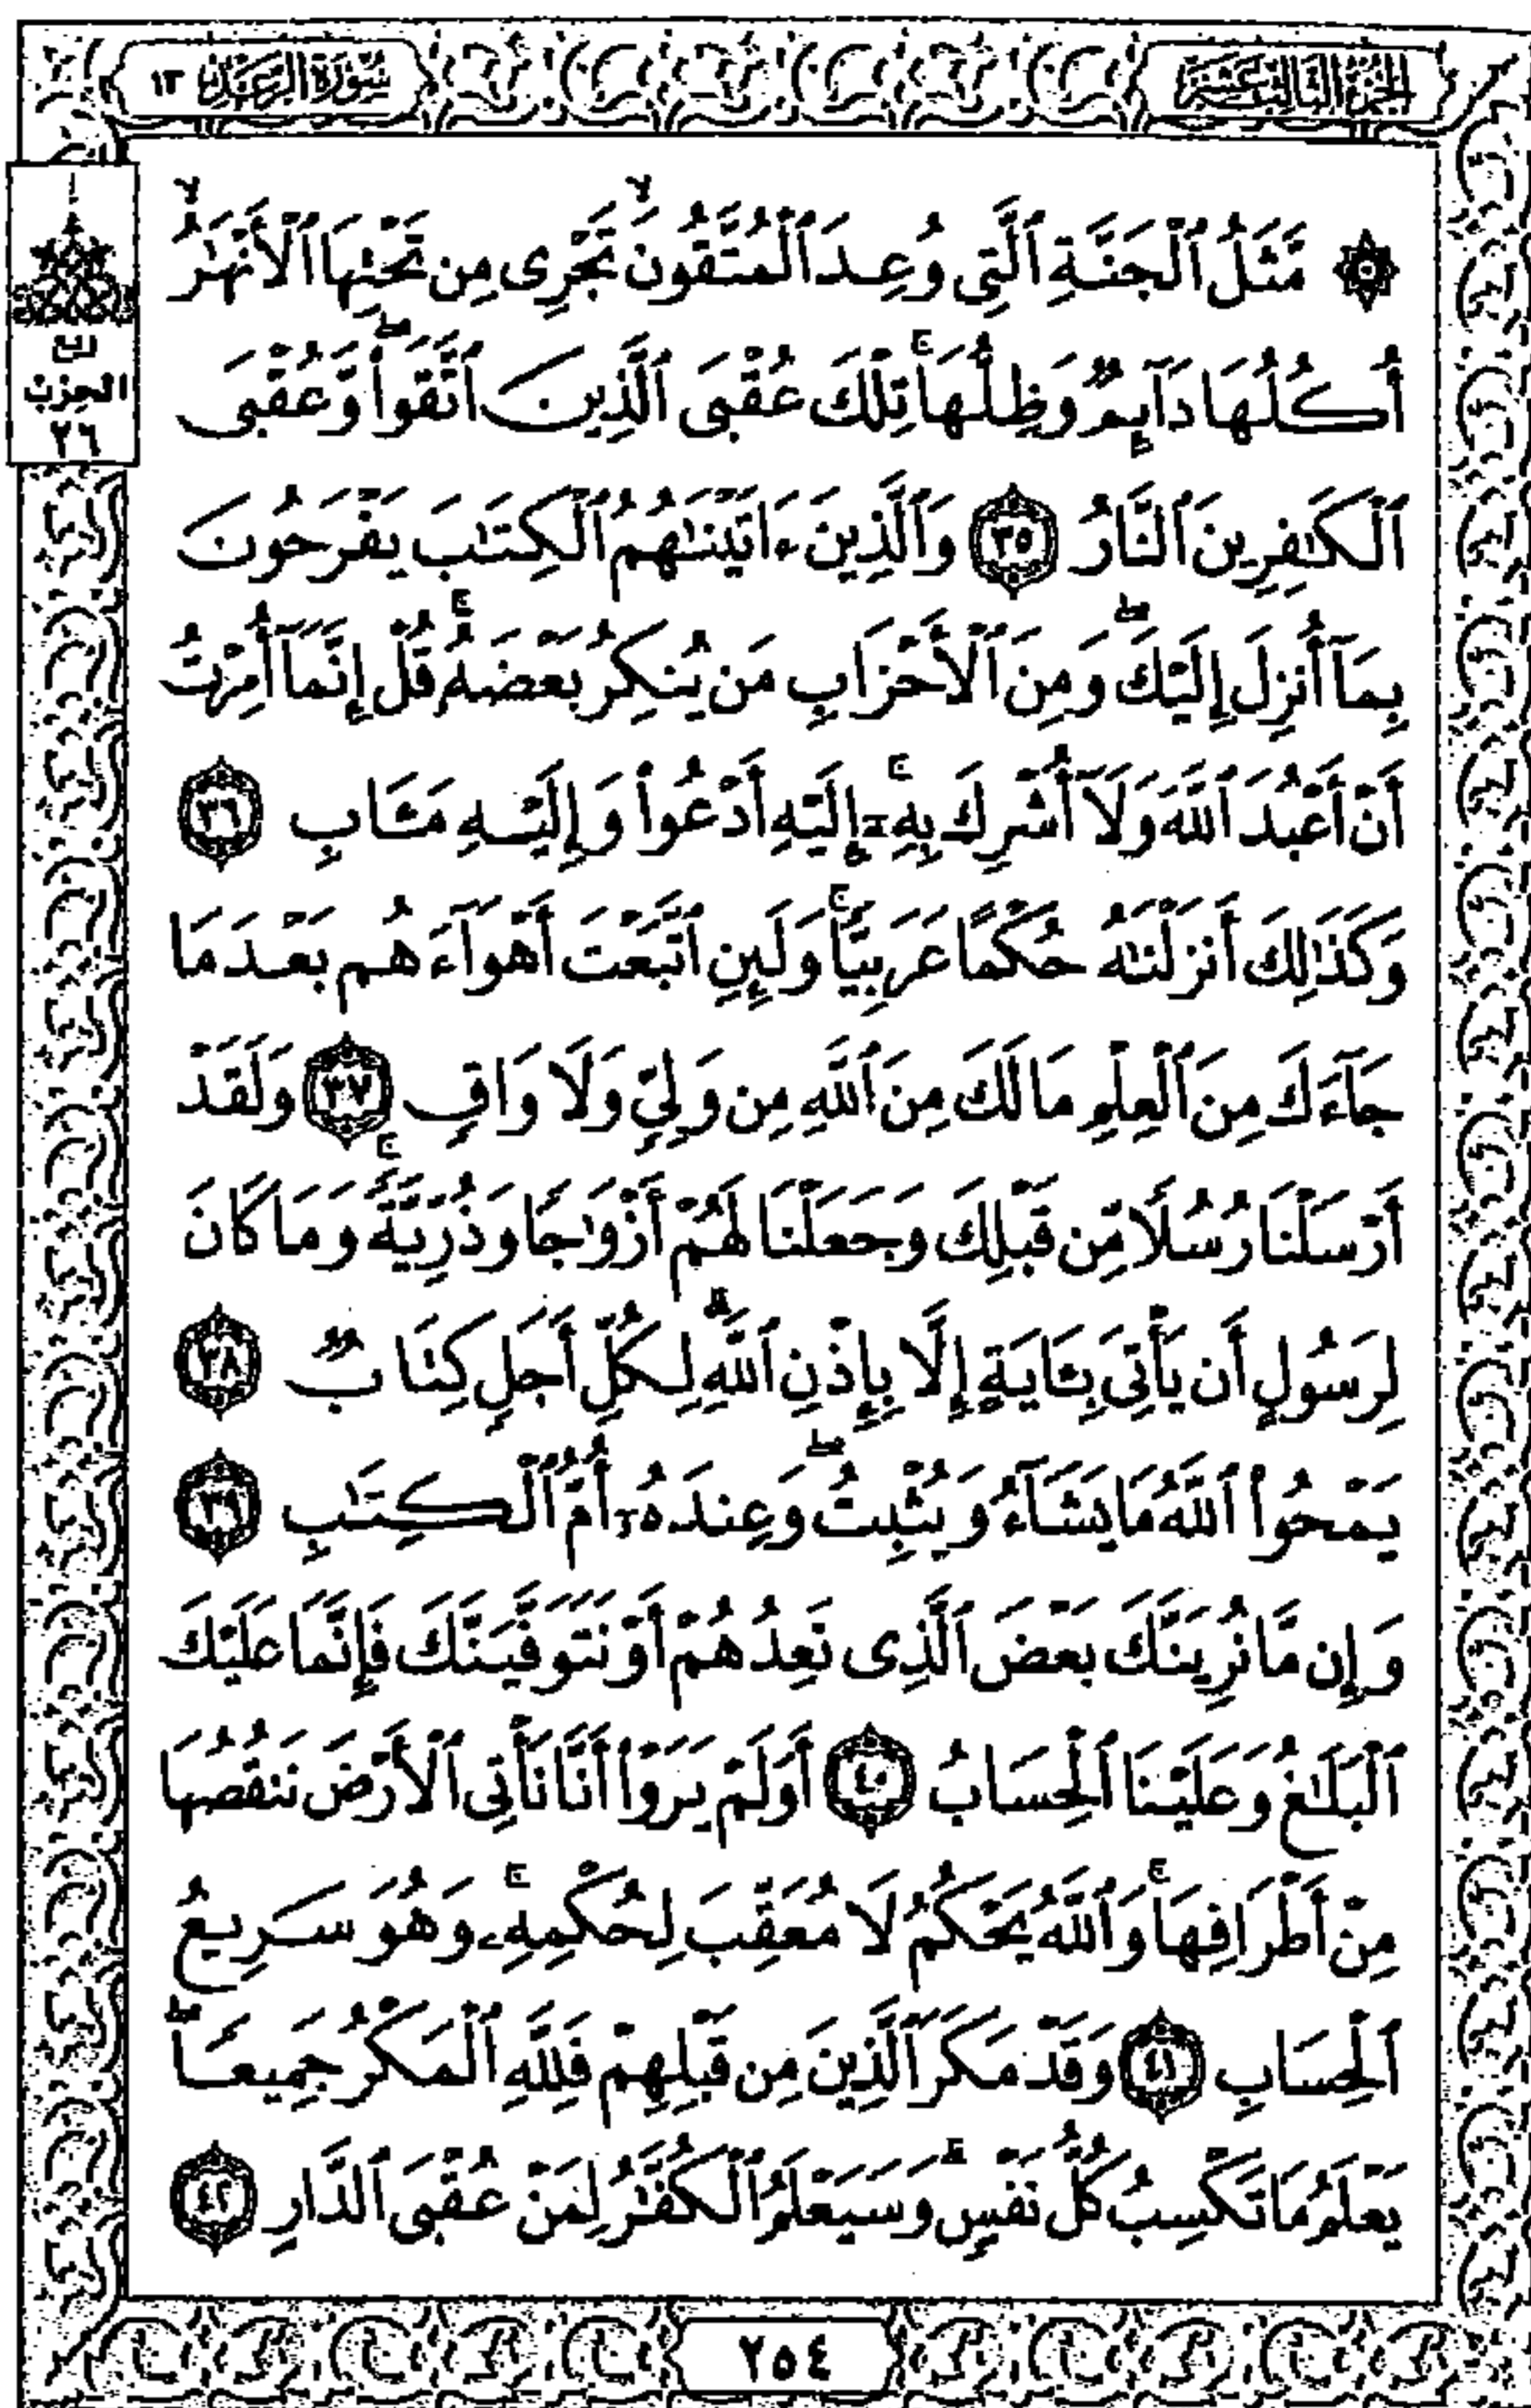 الجزء الثالث عشر
سورة الرعد ١٣
ربع
الحزب
٢٦
۞ مَّثَلُ ٱلْجَنَّةِ ٱلَّتِى وُعِدَ ٱلْمُتَّقُونَۙ تَجْرِى مِن تَحْتِهَا ٱلْأَنْهَٰرُۙ
أُكُلُهَا دَآئِمٌ وَظِلُّهَاۚ تِلْكَ عُقْبَى ٱلَّذِينَ ٱتَّقَوا۟ۖ وَّعُقْبَى
ٱلْكَٰفِرِينَ ٱلنَّارُ ٣٥ وَٱلَّذِينَ ءَاتَيْنَٰهُمُ ٱلْكِتَٰبَ يَفْرَحُونَ
بِمَآ أُنزِلَ إِلَيْكَۖ وَمِنَ ٱلْأَحْزَابِ مَن يُنكِرُ بَعْضَهُۥۚ قُلْ إِنَّمَآ أُمِرْتُ
أَنْ أَعْبُدَ ٱللَّهَ وَلَآ أُشْرِكَ بِهِۦٓۚ إِلَيْهِ أَدْعُوا۟ وَإِلَيْهِ مَـَٔابِ ٣٦
وَكَذَٰلِكَ أَنزَلْنَٰهُ حُكْمًا عَرَبِيًّاۚ وَلَئِنِ ٱتَّبَعْتَ أَهْوَآءَهُم بَعْدَمَا
جَآءَكَ مِنَ ٱلْعِلْمِ مَا لَكَ مِنَ ٱللَّهِ مِن وَلِىٍّ وَلَا وَاقٍ ٣٧ وَلَقَدْ
أَرْسَلْنَا رُسُلًا مِّن قَبْلِكَ وَجَعَلْنَا لَهُمْ أَزْوَٰجًا وَذُرِّيَّةًۚ وَمَا كَانَ
لِرَسُولٍ أَن يَأْتِىَ بِـَٔايَةٍ إِلَّا بِإِذْنِ ٱللَّهِۗ لِكُلِّ أَجَلٍ كِتَابٌ ٣٨
يَمْحُوا۟ ٱللَّهُ مَا يَشَآءُ وَيُثْبِتُۖ وَعِندَهُۥٓ أُمُّ ٱلْكِتَٰبِ ٣٩
وَإِن مَّا نُرِيَنَّكَ بَعْضَ ٱلَّذِى نَعِدُهُمْ أَوْ نَتَوَفَّيَنَّكَ فَإِنَّمَا عَلَيْكَ
ٱلْبَلَٰغُ وَعَلَيْنَا ٱلْحِسَابُ ٤٠ أَوَلَمْ يَرَوْا۟ أَنَّا نَأْتِى ٱلْأَرْضَ نَنقُصُهَا
مِنْ أَطْرَافِهَاۚ وَٱللَّهُ يَحْكُمُ لَا مُعَقِّبَ لِحُكْمِهِۦۚ وَهُوَ سَرِيعُ
ٱلْحِسَابِ ٤١ وَقَدْ مَكَرَ ٱلَّذِينَ مِن قَبْلِهِمْ فَلِلَّهِ ٱلْمَكْرُ جَمِيعًاۖ
يَعْلَمُ مَا تَكْسِبُ كُلُّ نَفْسٍۗ وَسَيَعْلَمُ ٱلْكُفَّٰرُ لِمَنْ عُقْبَى ٱلدَّارِ ٤٢
٢٥٤